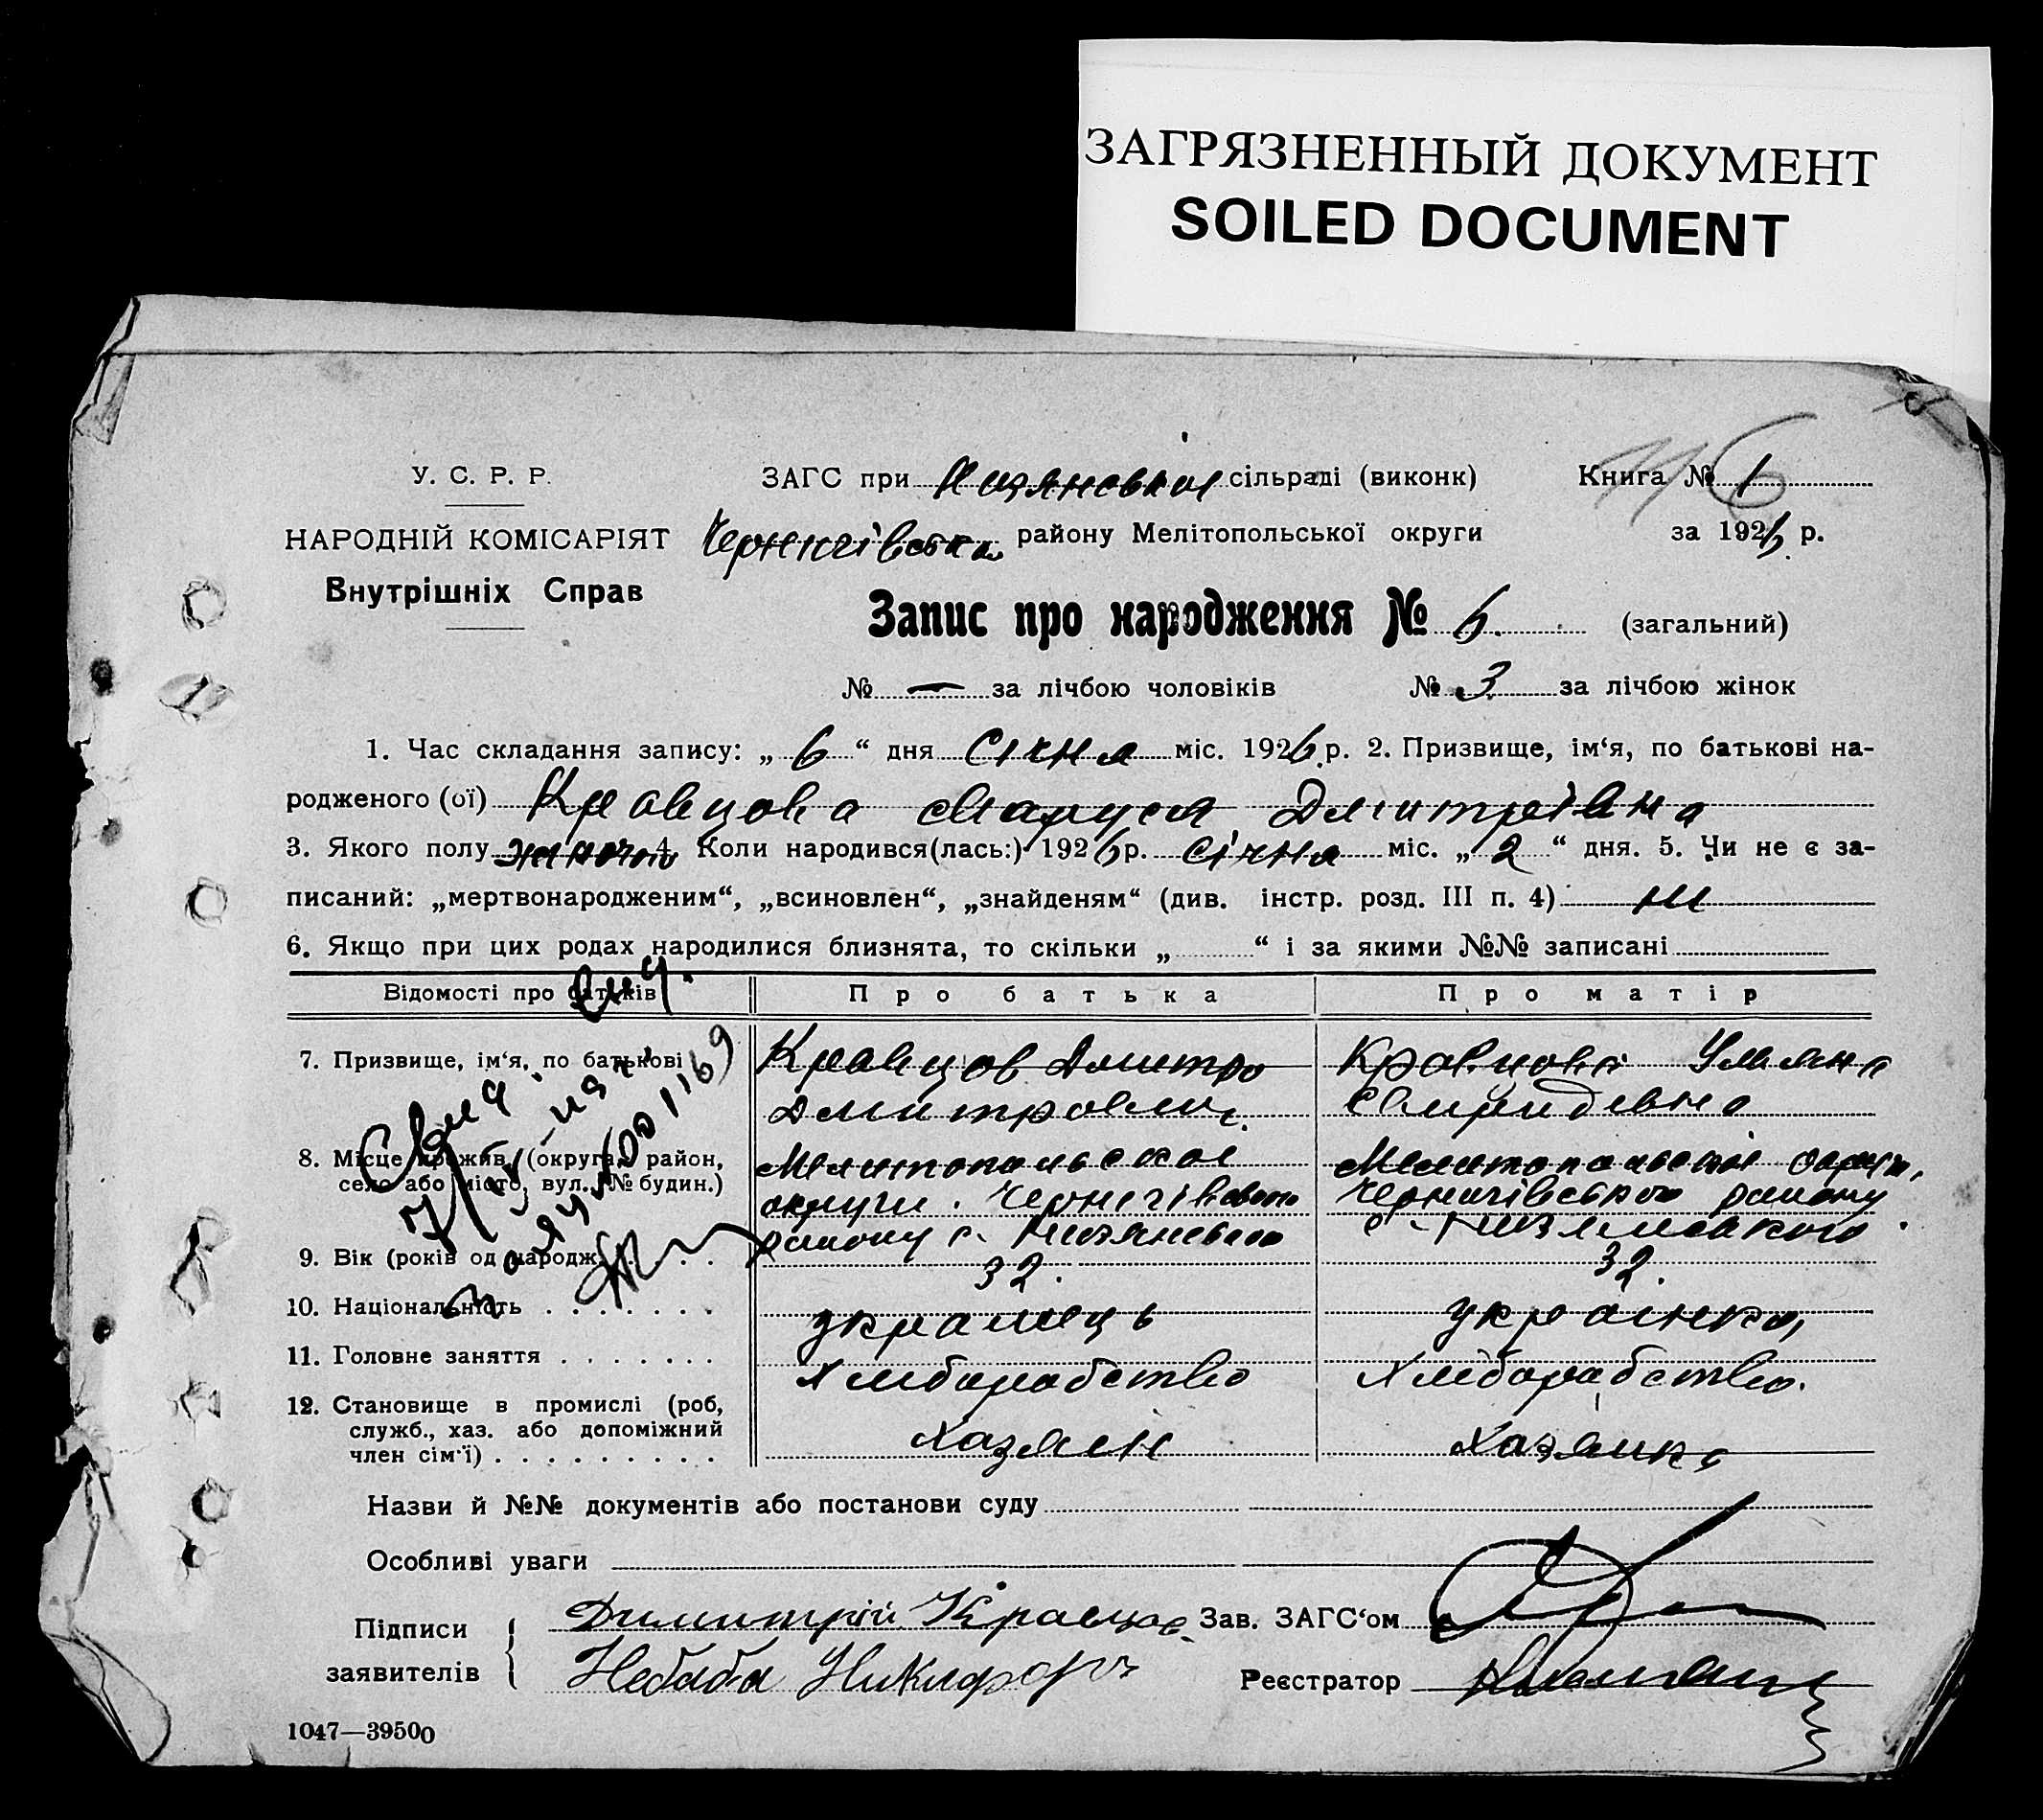 ЗАГРЯЗНЕННЫЙ ДОКУМЕНТ
SOILED DOCUMENT
У. С. Р. Р.
ЗАГС при сільраді (виконк)
Книга № 1
116
НАРОДНІЙ КОМІСАРІЯТ
району Мелітопольської округи
за 1926 р.
Внутрішніх Справ
Запис про народження № 6. (загальний)
№ — за лічбою чоловіків № 3 за лічбою жінок
1. Час складання запису: „ 6 “ дня Січня міс. 1926 р. 2. Призвище, ім‘я, по батькові на-
родженого (ої) Кравцова Маруся Дмитрівна
3. Якого полу 4. Коли народився(лась:) 1926 р. Січня міс. „ 2 “ дня. 5. Чи не є за-
писаний: „мертвонародженим“, „всиновлен“, „знайденям“ (див. інстр. розд. III п. 4) ні
6. Якщо при цих родах народилися близнята, то скільки „ “ і за якими №№ записані
Відомості про батьків Про батька Про матір
7. Призвище, ім‘я, по батькові Кравцов Дмитро Кравцова Уляна
Дмитрович. Свиридівна
8. Місце прожив. (округа, район, Мелитопольскої Мелитопольскої округи,
село або місто, вул., № будин.) округи. Чернигівського Чернигівського району
району с.
9. Вік (років од народж. 32. 32.
10. Національність українець українка
11. Головне заняття Хліборобство Хліборобство.
12. Становище в промислі (роб,
служб., хаз. або допоміжний Хазяін Хазяйка
член сім‘ї)
Назви й №№ документів або постанови суду
Особливі уваги
Підписи Димитрій Кравцов Зав. ЗАГС‘ом
заявителів Небаба Никифор Реєстратор
1047—39500